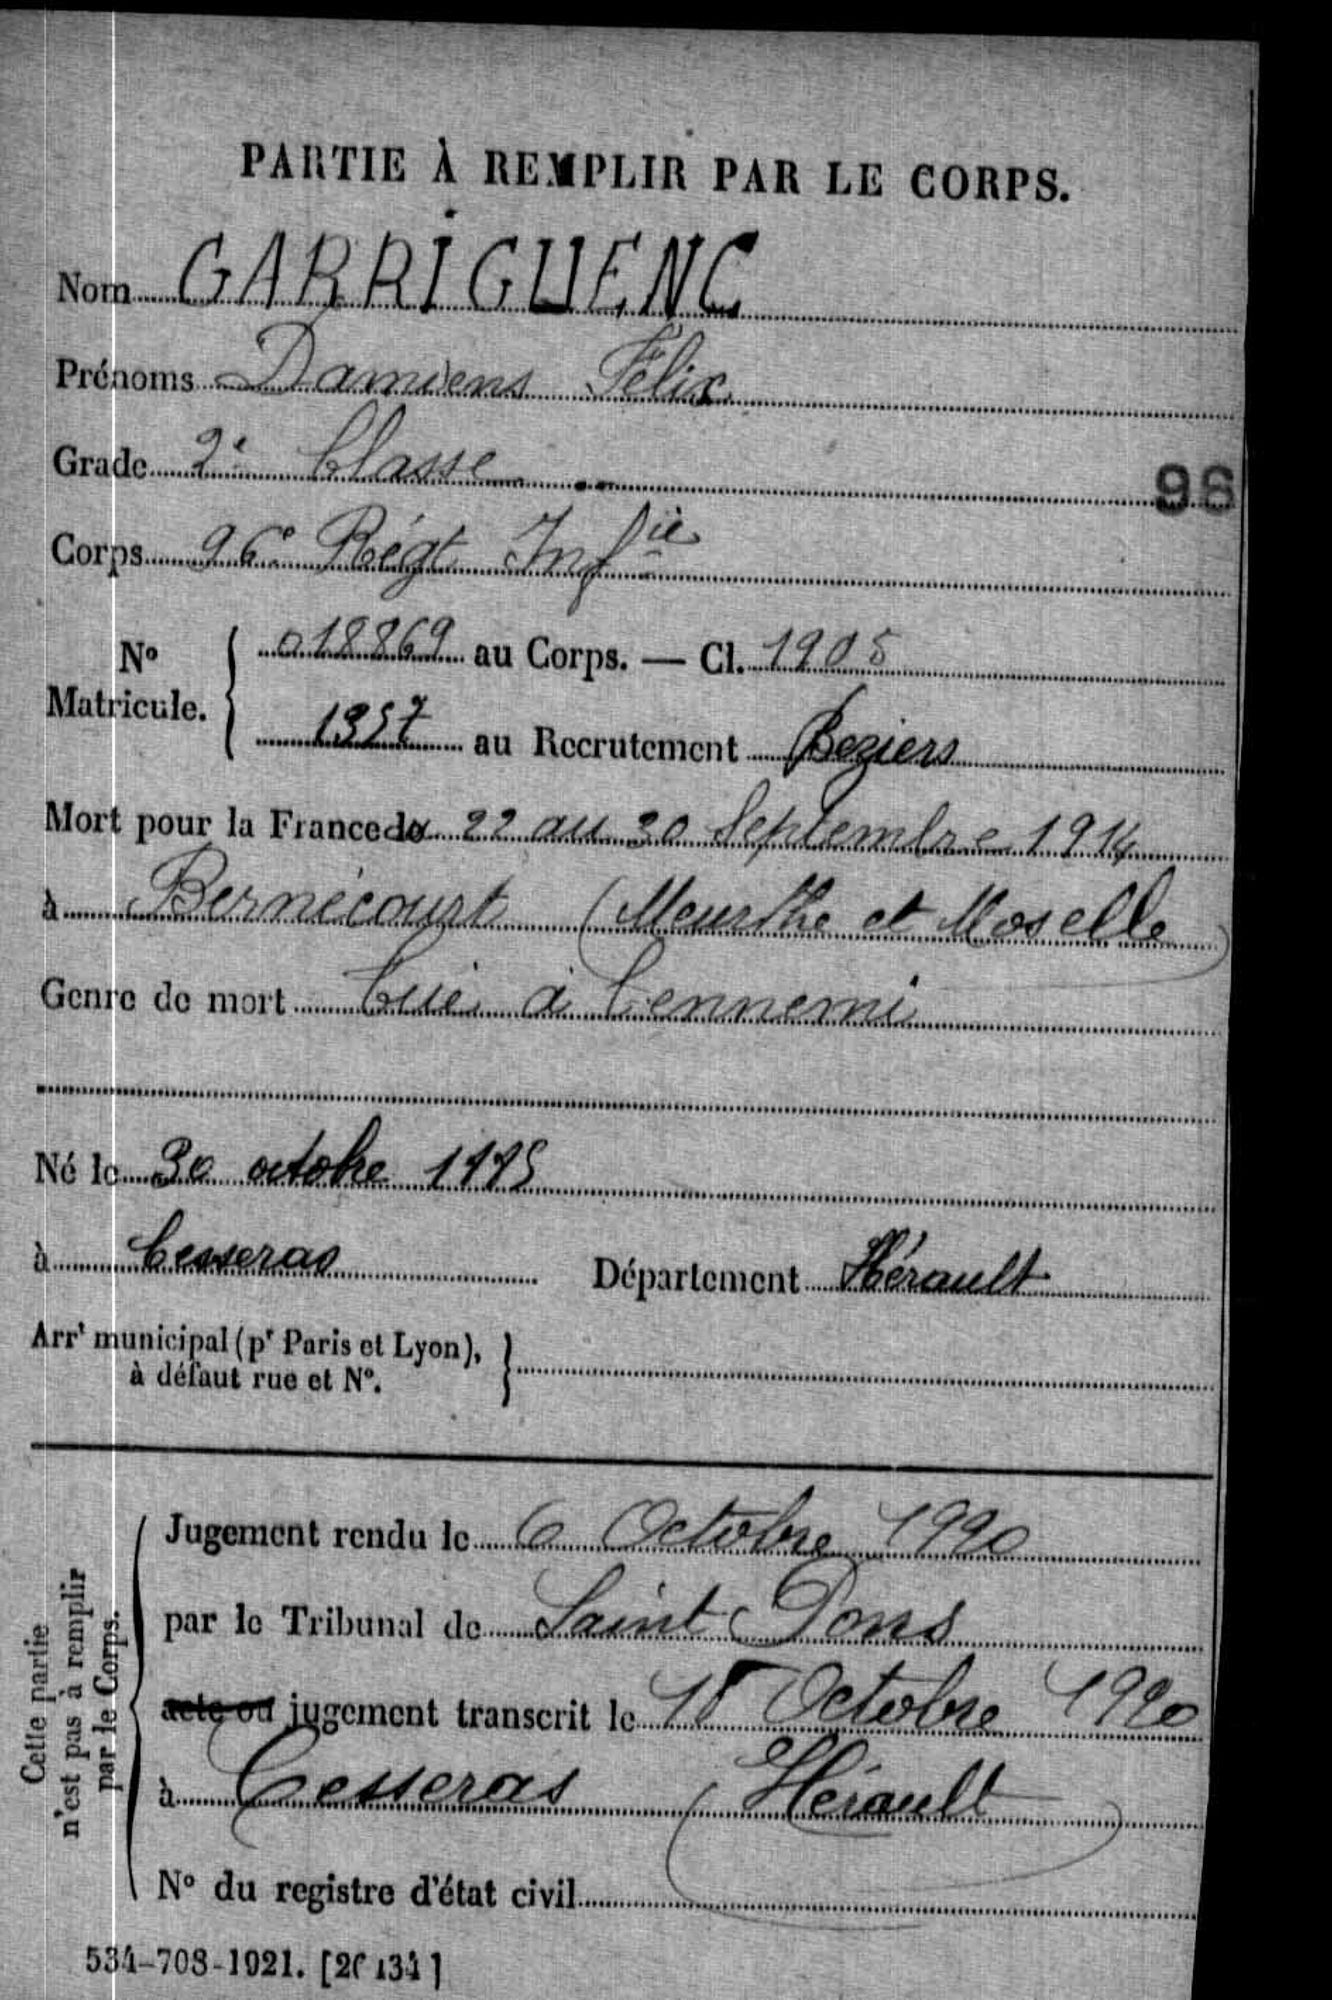 PARTIE À REMPLIR PAR LE CORPS.
Nom GARRIGUENC
Prénoms Damiens Félix
Grade 2e Classe
96
Corps 96e Régt Infie
No Matricule. 018869 au Corps. — Cl. 1905
1357 au Recrutement Beziers
Mort pour la France du 22 au 30 Septembre 1914
à Bernécourt (Meurthe et Moselle)
Genre de mort Tué à l'ennemi
Né le 30 octobre 1885
à Cesseras Département Hérault
Arrt municipal (pr Paris et Lyon),
à défaut rue et No.
Cette partie
n'est pas à remplir
par le Corps.
Jugement rendu le 6 Octobre 1920
par le Tribunal de Saint Pons
acte ou jugement transcrit le 18 Octobre 1920
à Cesseras (Hérault)
No du registre d'état civil
534-708-1921. [26134]